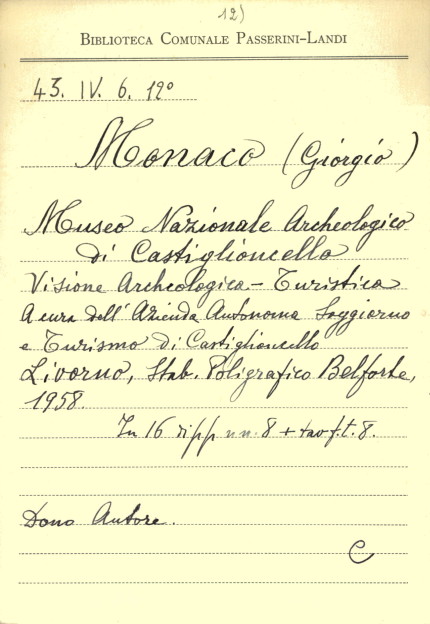 12)
BIBLIOTECA COMUNALE PASSERINI-LANDI
43. IV. 6. 12º
Monaco (Giorgio)
Museo Nazionale Archeologico
di Castiglioncello
Visione Archeologica - Turistica
A cura dell'Azienda Autonoma Soggiorno
e Turismo di Castiglioncello
Livorno, Stab. Poligrafico Belforte,
1958.
In 16 di pp nn. 8 + tav f.t. 8.
Dono Autore.
C